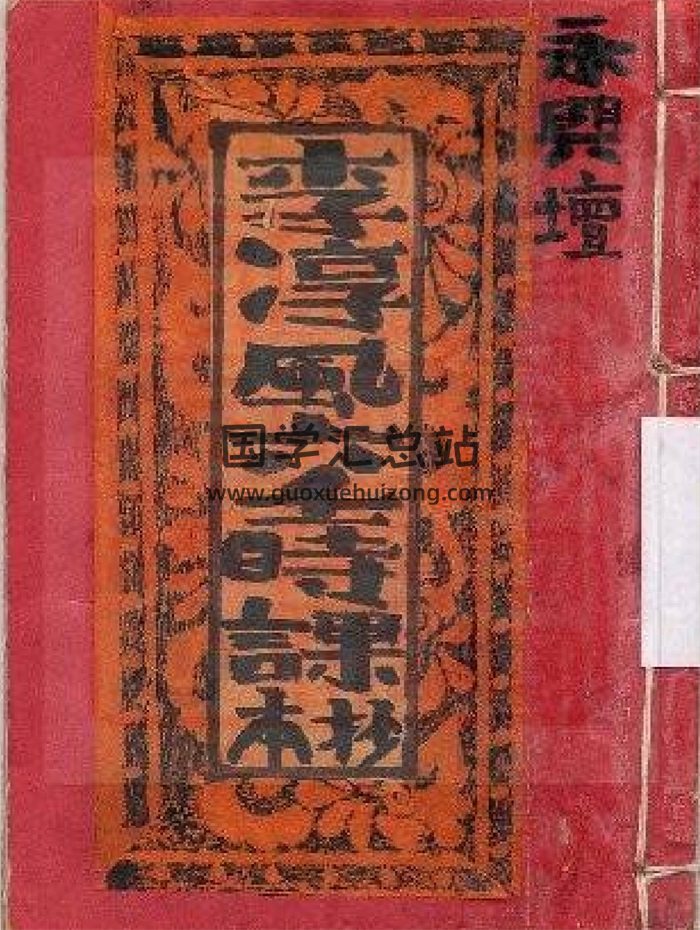 永興壇
李淳風六壬時課
抄本
国学汇总站
www.guoxuehuizong.com